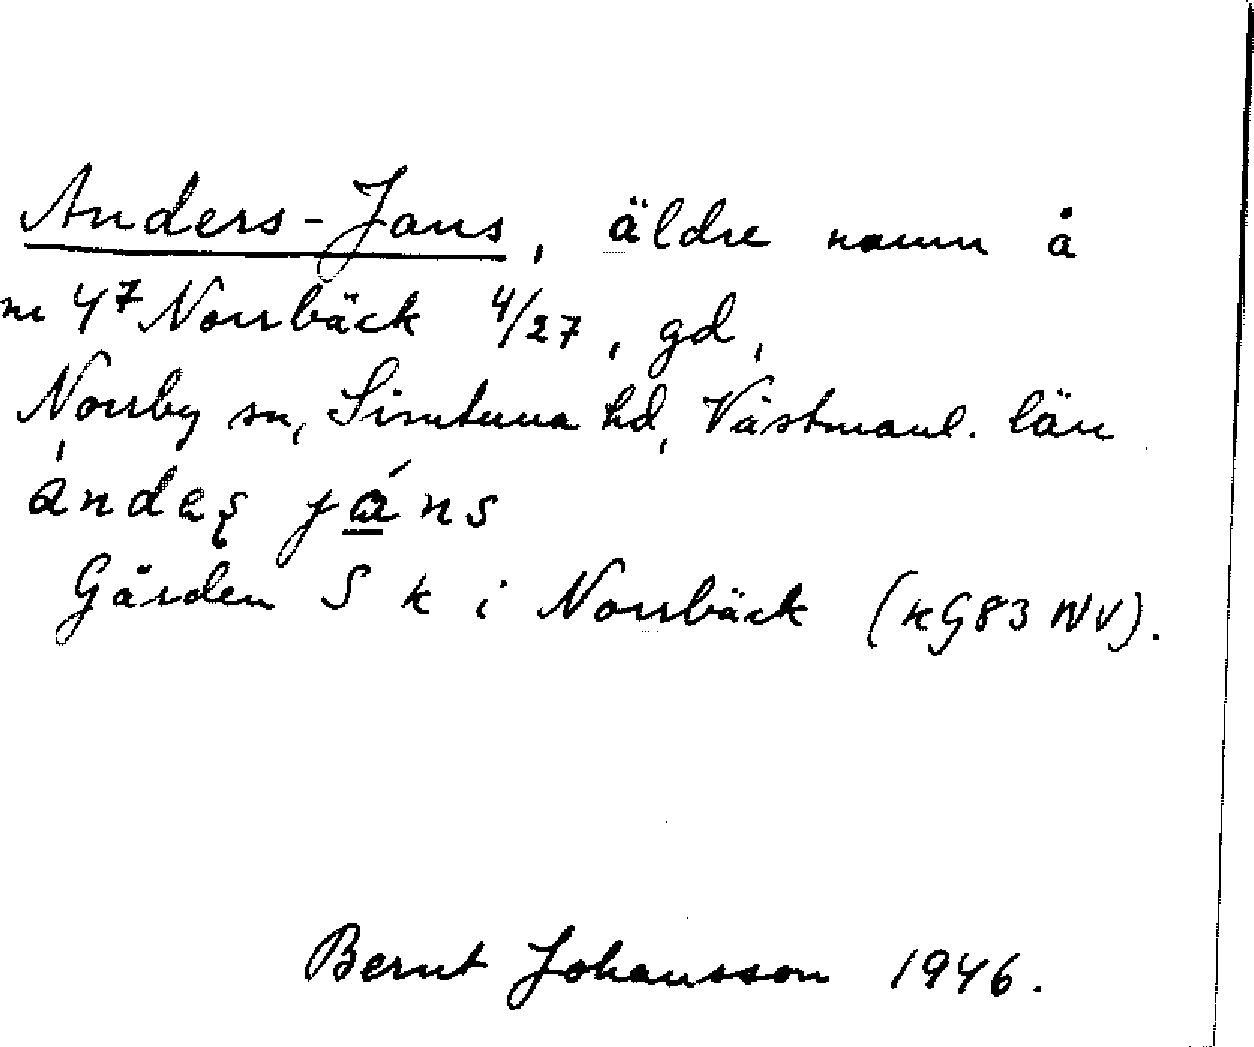 Anders-Jans, äldre namn å
m 4⁷ Norrbäck 4/27, gd,
Norrby sn, Simtuna hd, Västmanl. län
ándeʂ ják̲ns
Gården S k i Norrbäck (kG83 NV).
Bernt Johansson 1946.